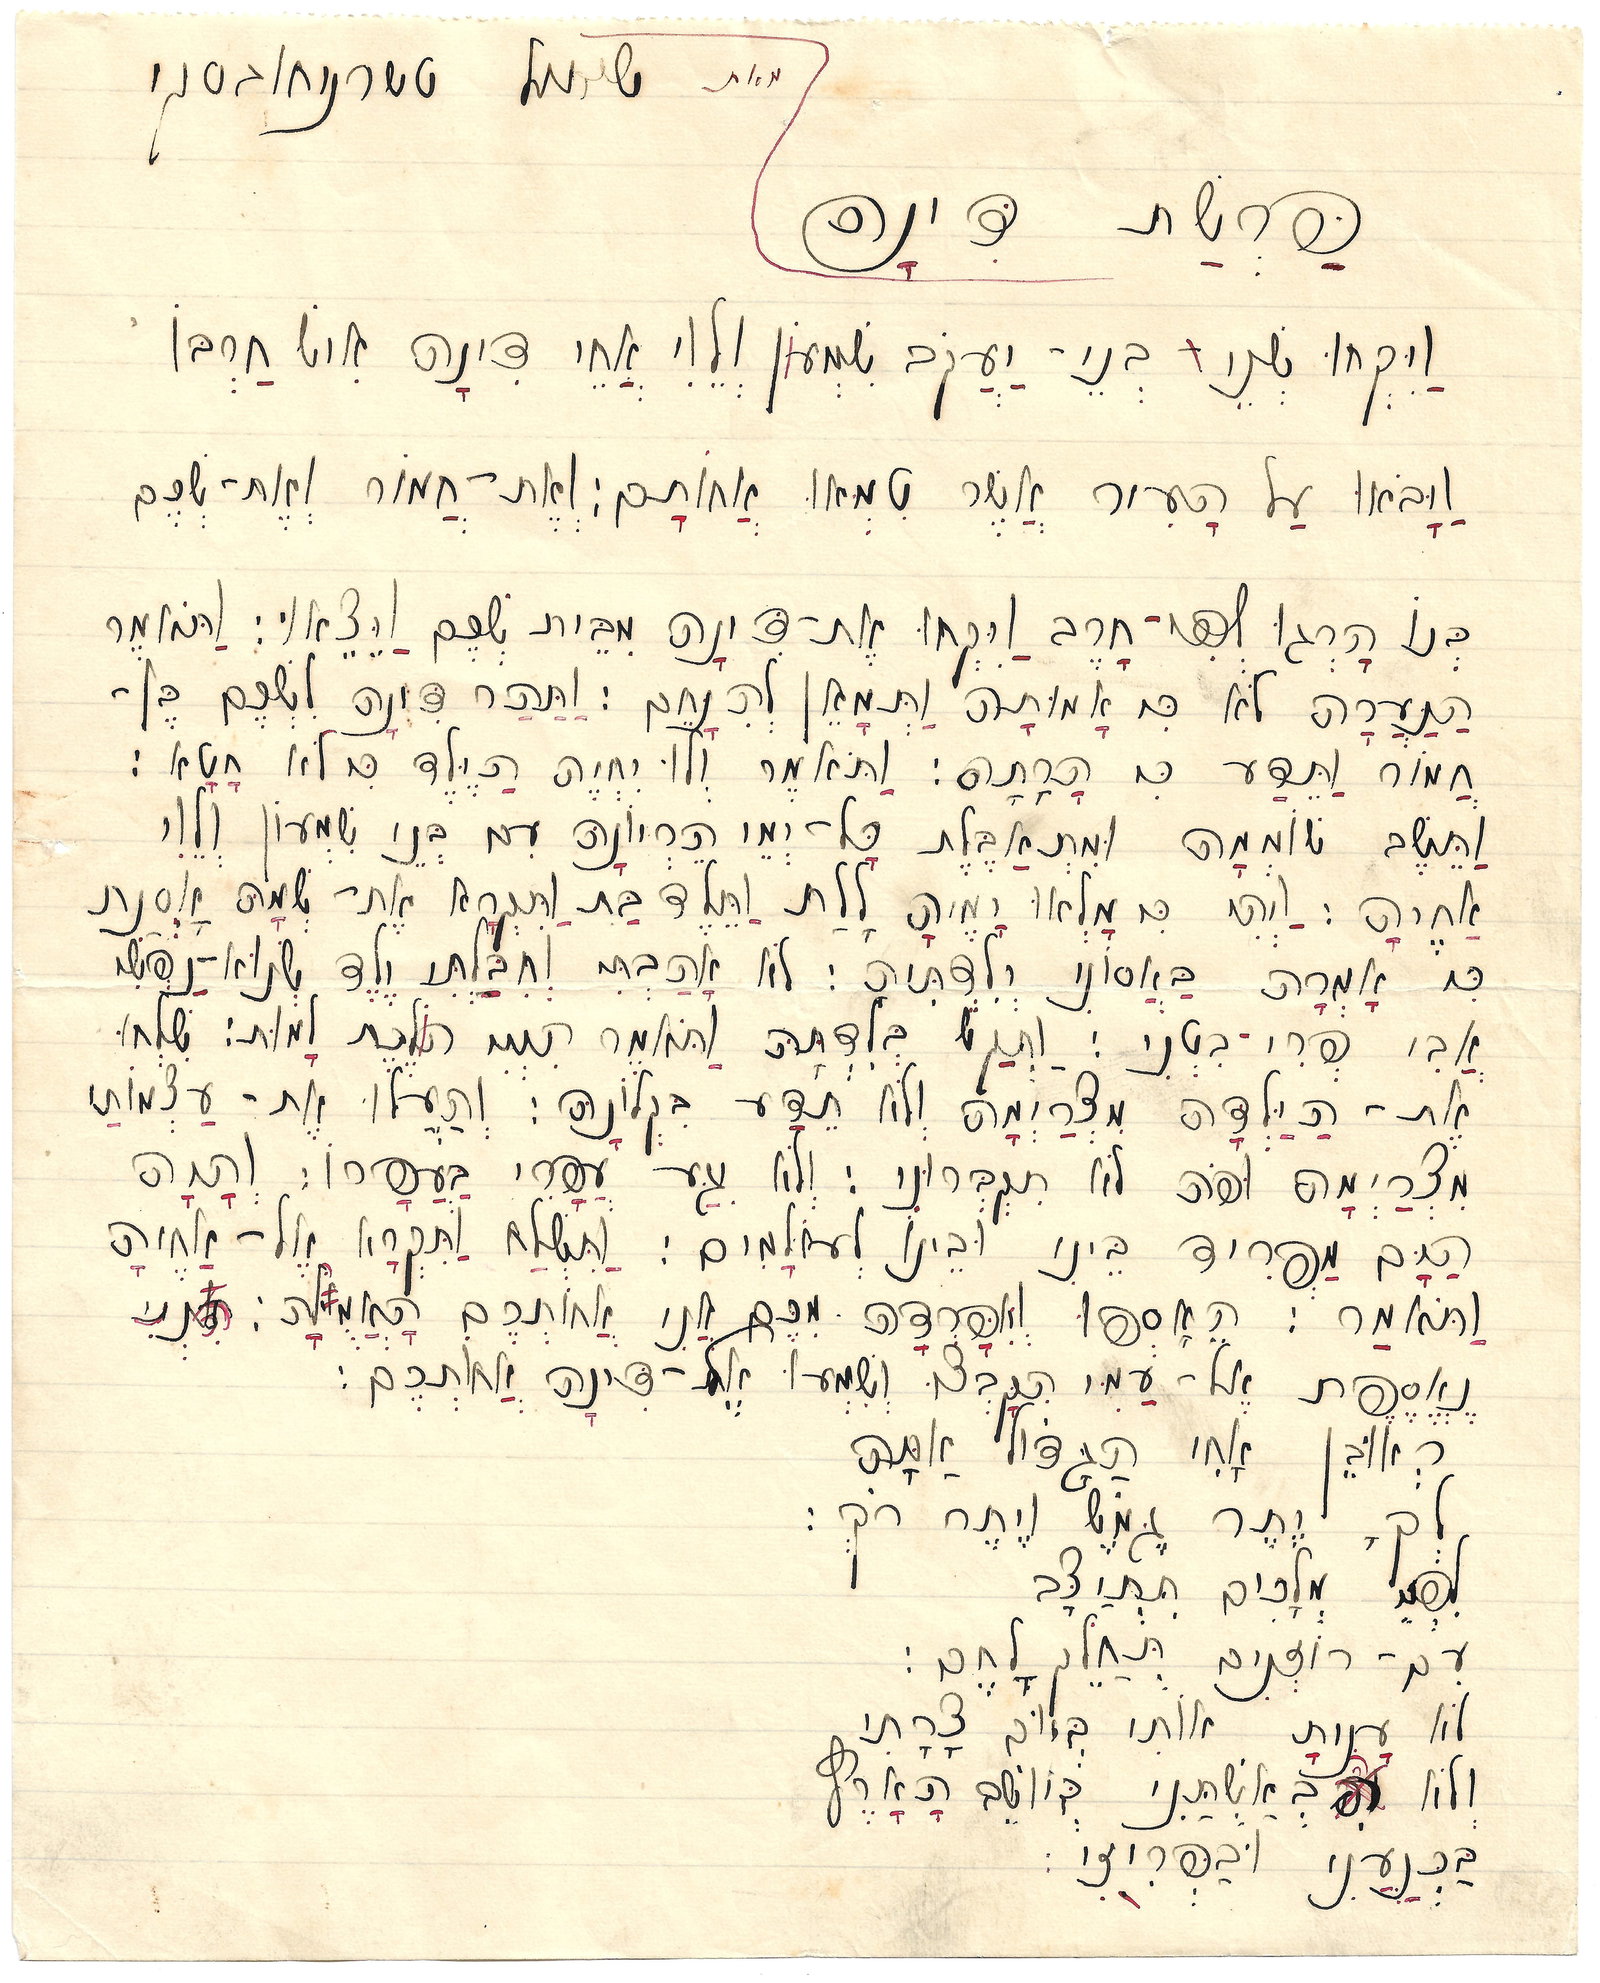 מאת שאול טשרניחובסקי
פָּרְשַׁת דִּינָה
וַיִּקְחוּ שְׁנֵי בְּנֵי־יַעֲקֹב שִׁמְעוֹן וְלֵוִי אֲחֵי דִינָה אִישׁ חַרְבּוֹ
וַיָּבֹאוּ עַל הָעִיר אֲשֶׁר טִמְּאוּ אֲחוֹתָם: וְאֶת־חֲמוֹר וְאֶת־שְׁכֶם
בְּנוֹ הָרְגוּ לְפִי־חָרֶב וַיִּקְחוּ אֶת־דִּינָה מִבֵּית שְׁכֶם וַיֵּצֵאוּ: וַתֹּאמֶר
הַנַּעֲרָה לֹא כִּי אָמוּתָה וַתְּמָאֵן לְהִנָּחֵם: וַתַּהַר דִּינָה לִשְׁכֶם בֶּן־
חֲמוֹר וַתֵּדַע כִּי הָרָתָה: וַתֹּאמֶר וְלוּ יִחְיֶה הַיֶּלֶד כִּי לֹא חָטָא:
וַתֵּשֶׁב שׁוֹמְמָה וּמִתְאַבֶּלֶת כָּל־יְמֵי הֵרְיוֹנָהּ עִם בְּנֵי שִׁמְעוֹן וְלֵוִי
אַחֶרָהָ: וַיְהִי כִּי מָלְאוּ יָמֶיהָ לָלֶת וַתֵּלֶד בַּת וַתִּקְרָא אֶת־שְׁמָהּ אָסְנַת
כִּי אָמְרָה בַּאֲסוֹנִי יְלִדְתִּיהָ: לֹא אָהַבְתִּי וְחִבַּלְתִּי וֶלֶד שְׂנוּא־נַפְשִׁי
אֲבִי פְּרִי־בִטְנִי: וַתְּקַשׁ בְּלִדְתָּהּ וַתֹּאמֶר הִנְנִי הוֹלֶכֶת לָמוּת: שִׁלְחוּ
אֶת־הַיַּלְדָּה מִצְרַיְמָה וְלֹא תֵדַע בִּקְלוֹנָהּ: וְהַעֲלוּ אֶת־עַצְמוֹתַי
מִצְרַיְמָה וּפֹה לֹא תִקְבְּרוּנִי: וְלֹא יִגַּע עֲפָרִי בַּעֲפָרוֹ: וְהָיָה
הַיָּם מַפְרִיד בֵּינִי וּבֵינוֹ לְעוֹלָמִים: וַתִּשְׁלַח וַתִּקְרָא אֶל־אַחֶיהָ
וַתֹּאמַר: הֵאָסְפוּ וְאִפָּרְדָה מִכֶּם אֲנִי אֲחוֹתְכֶם הָאֻמְלָלָה: הִנְנִי
נֶאֱסֶפֶת אֶל־עַמִּי הִקָּבְצוּ וְשִׁמְעוּ אֶל־דִּינָה אֲחוֹתְכֶם:
רְאוּבֵן אָחִי הַגָּדוֹל אַתָּה
לְךָ יֶתֶר גֶּמֶשׁ וְיֶתֶר רֹךְ:
לִפְנֵי מְלָכִים תִּתְיַצָּב
עִם־רוֹזְנִים תְּחַלֵּק לָחֶם:
לֹא עָנִיתָ אוֹתִי בְּיוֹם צָרָתִי
וְלֹא הִבְאַשְׁתַּנִי בְּיוֹשֵׁב הָאָרֶץ
בַּכְּנַעֲנִי וּבַפְּרִיזִּי: